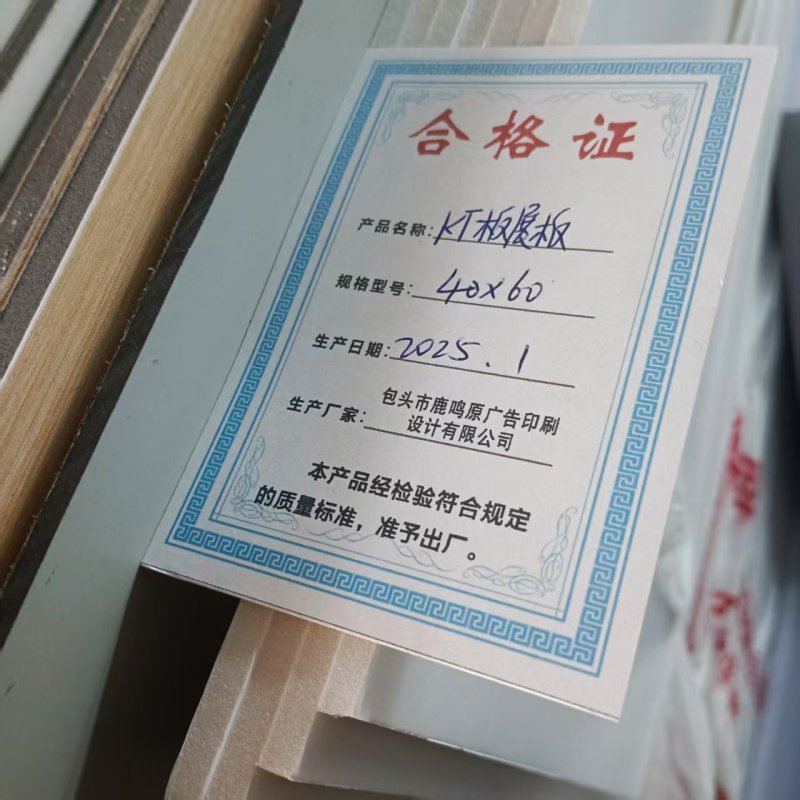 合格证
产品名称：KT板展板
规格型号：40×60
生产日期：2025.1
生产厂家：包头市鹿鸣原广告印刷
设计有限公司
本产品经检验符合规定
的质量标准，准予出厂。